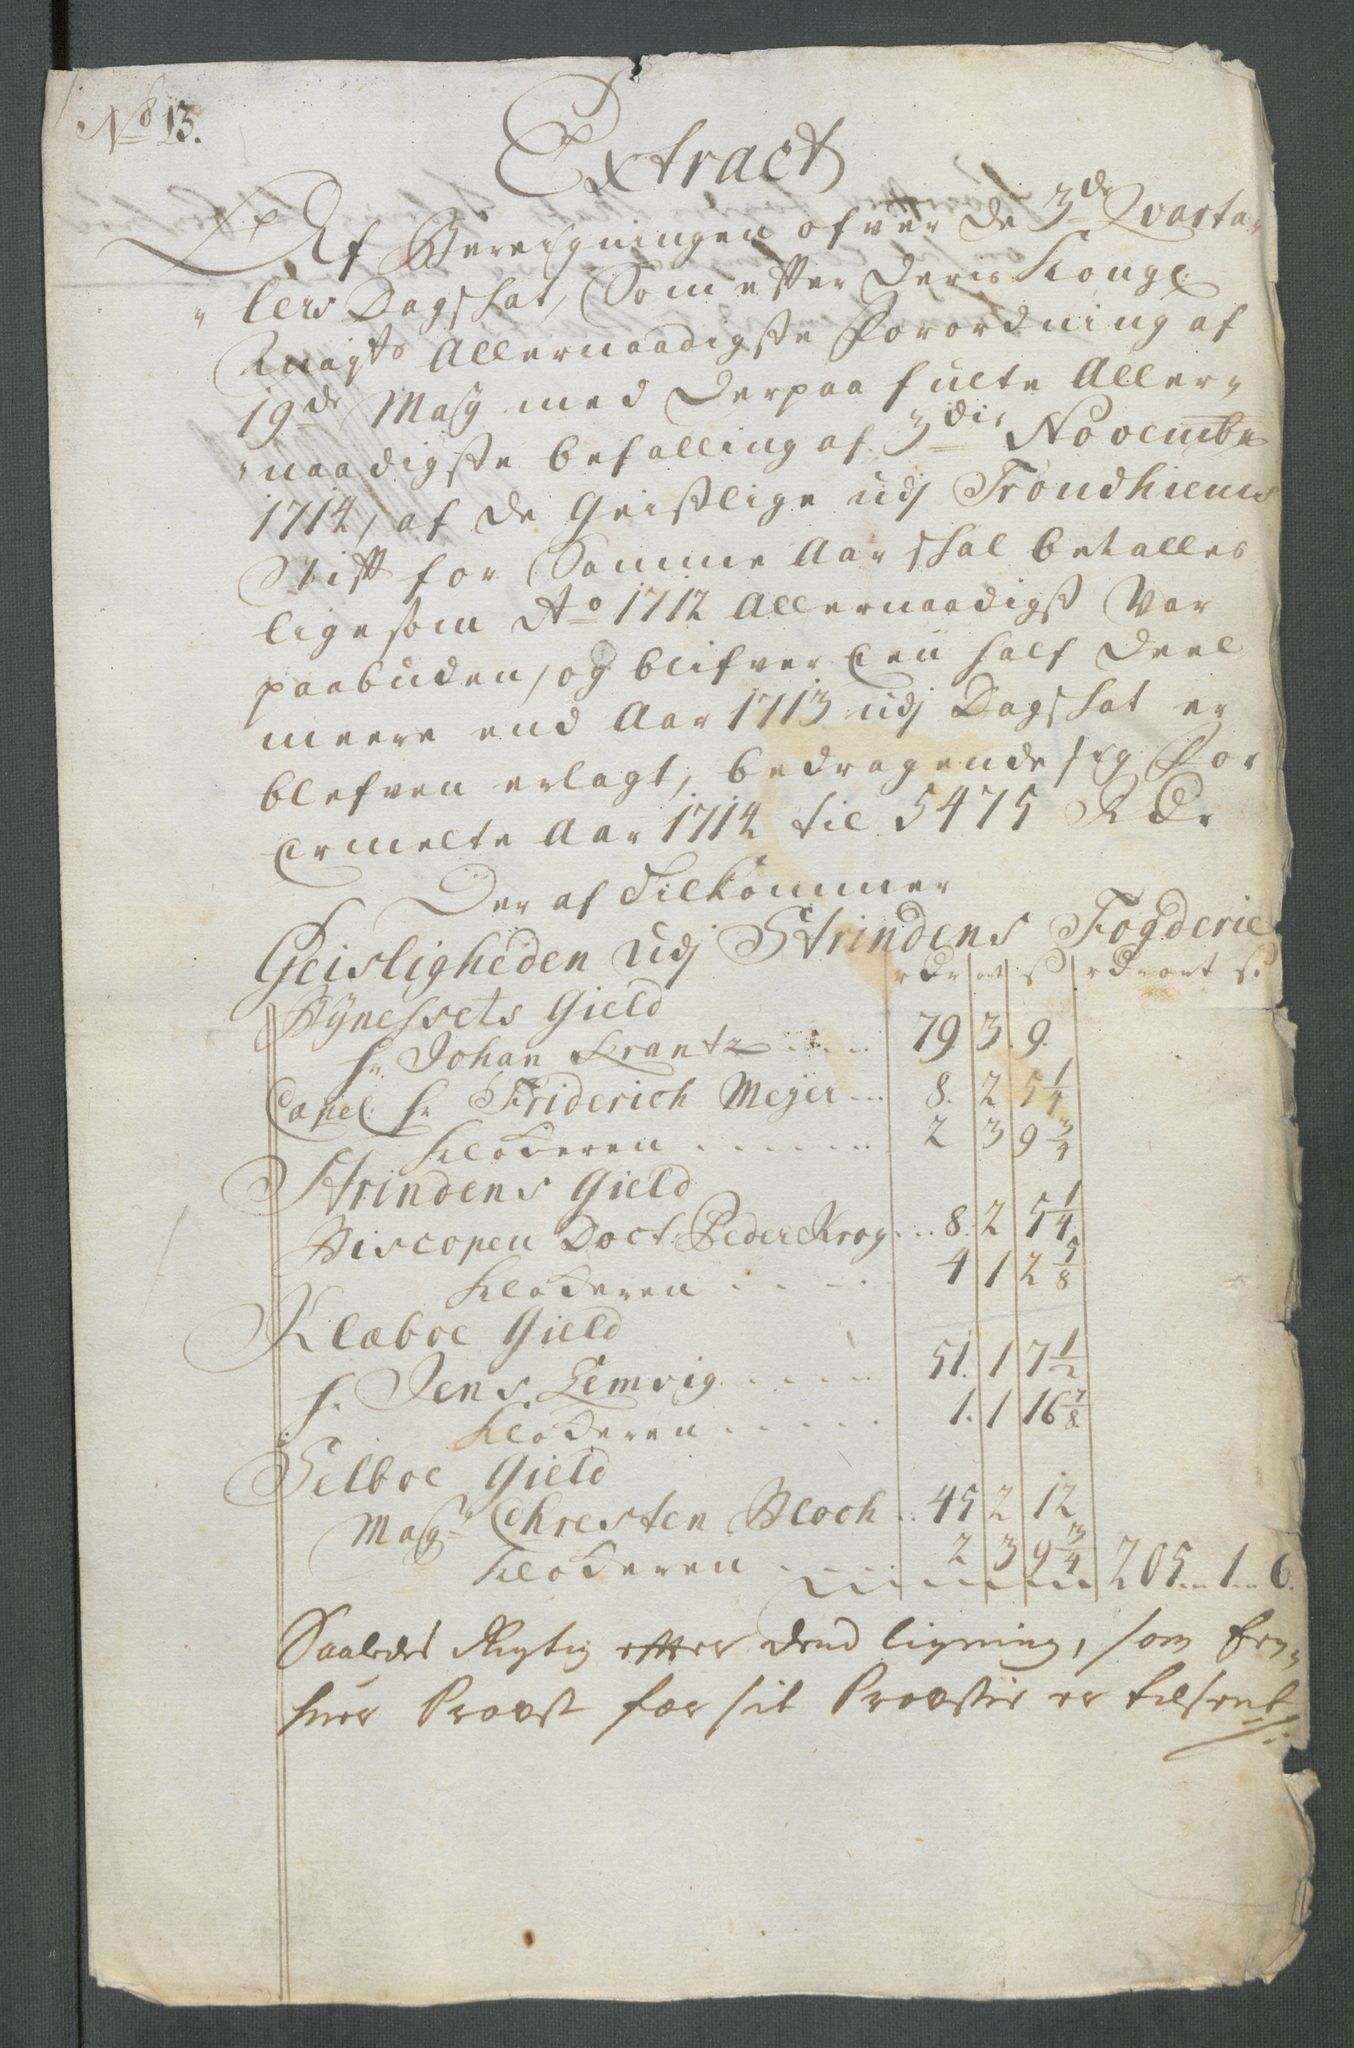 No 13.
Extract
Af Beregningen ofver de 3de Qvarta-
lers Dagskat, som efter Deris Kongl
Mayts Allernaadigste Forordning af
19de May med derpaa fulte Aller-
naadigste befalling af 3die Novembr
1714, af de Geistlige udj Trondhiems
Stift for Samme Aar skal betalles
ligesom Ao 1712 Allernaadigst Var
paabuden, og blifver een half deel
meere end Aar 1713 udj Dagskat er
blefven erlagt, bedragende sig for
ermelte Aar 1714 til 5475 Rdr
Der af Tilkommer
Geisligheden udj Strindens Fogderie
rdr ort s rdr ort s.
Bynessets Gield
hr Johan Krantz ..... 79. 3. 9.
Capel: hr Friderich Meyer ... 8. 2 5 1/4
Klokeren ....... 2 3 9 3/4
Strindens Gield
Biscopen Doct: Peder Krog ... 8. 2 5 1/4
Klokeren ..... 4 1 2 5/8
Klæboe Gield
hr Jens Lemvig ..... 51. 1 7 1/2
Klokeren ..... 1. 1 16 7/8
Selboe Gield
Magr Christen Bloch .. 45 2 12
Klokeren ..... 2 3 9 3/4 205 .. 1 .. 6.
Saaledes Rigtig efter dend ligning, som En-
hver Provst for sit Provstie er tilsent